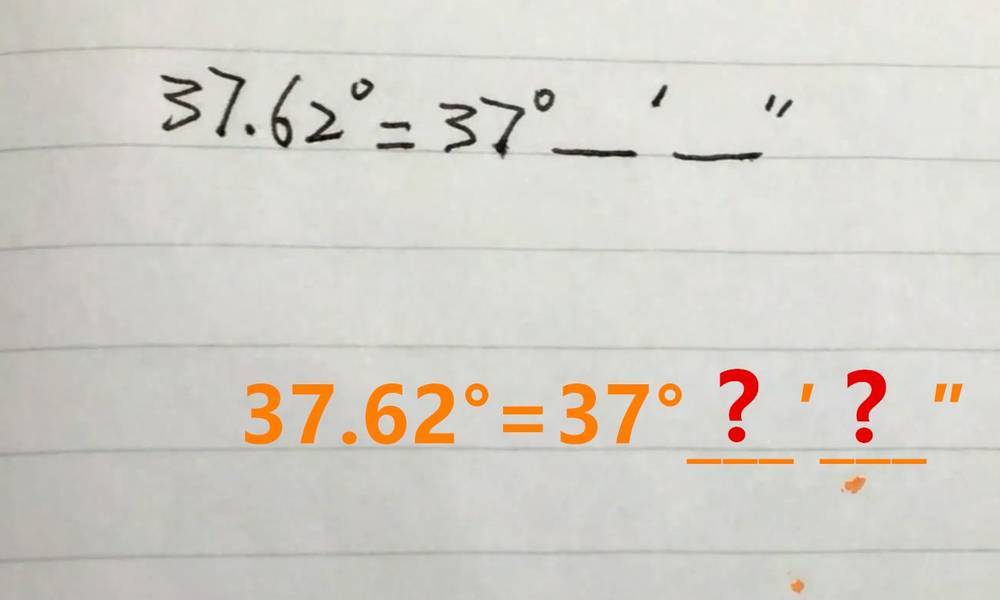 37.62°=37°__′__″
37.62°=37°?′?″